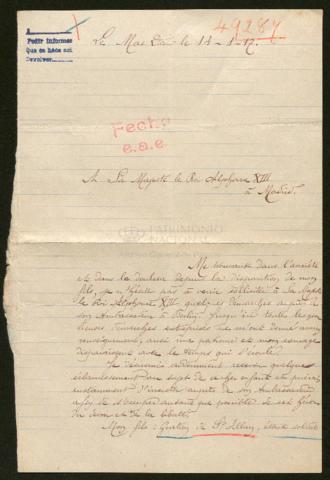 A
49287
Pedir informes
Que se hace así
Devolver
Le Mas d' le 18-8-17.
Fecho
e.a.e.
A Sa Majesté le Roi Alphonse XIII
à Madrid.
PATRIMONIO
NACIONAL
Me trouvant dans l'anxiété
et dans la douleur depuis la disparition de mon
fils, je n'hésite pas à venir solliciter à Sa Majesté
le Roi Alphonse XIII quelques démarches auprès de
son Ambassadeur à Berlin. Jusqu'ici toutes les
démarches entreprises ne m'ont donné aucun
renseignement, aussi ma patience et mon courage
disparaissent avec le temps qui s'écoule.
Je désirerais ardemment recevoir quelque
éclaircissement au sujet de ce cher enfant et
instamment d'insister auprès de son Ambassadeur
afin de s'occuper autant que possible de cet
Mon fils : de St Alban, étant soldat